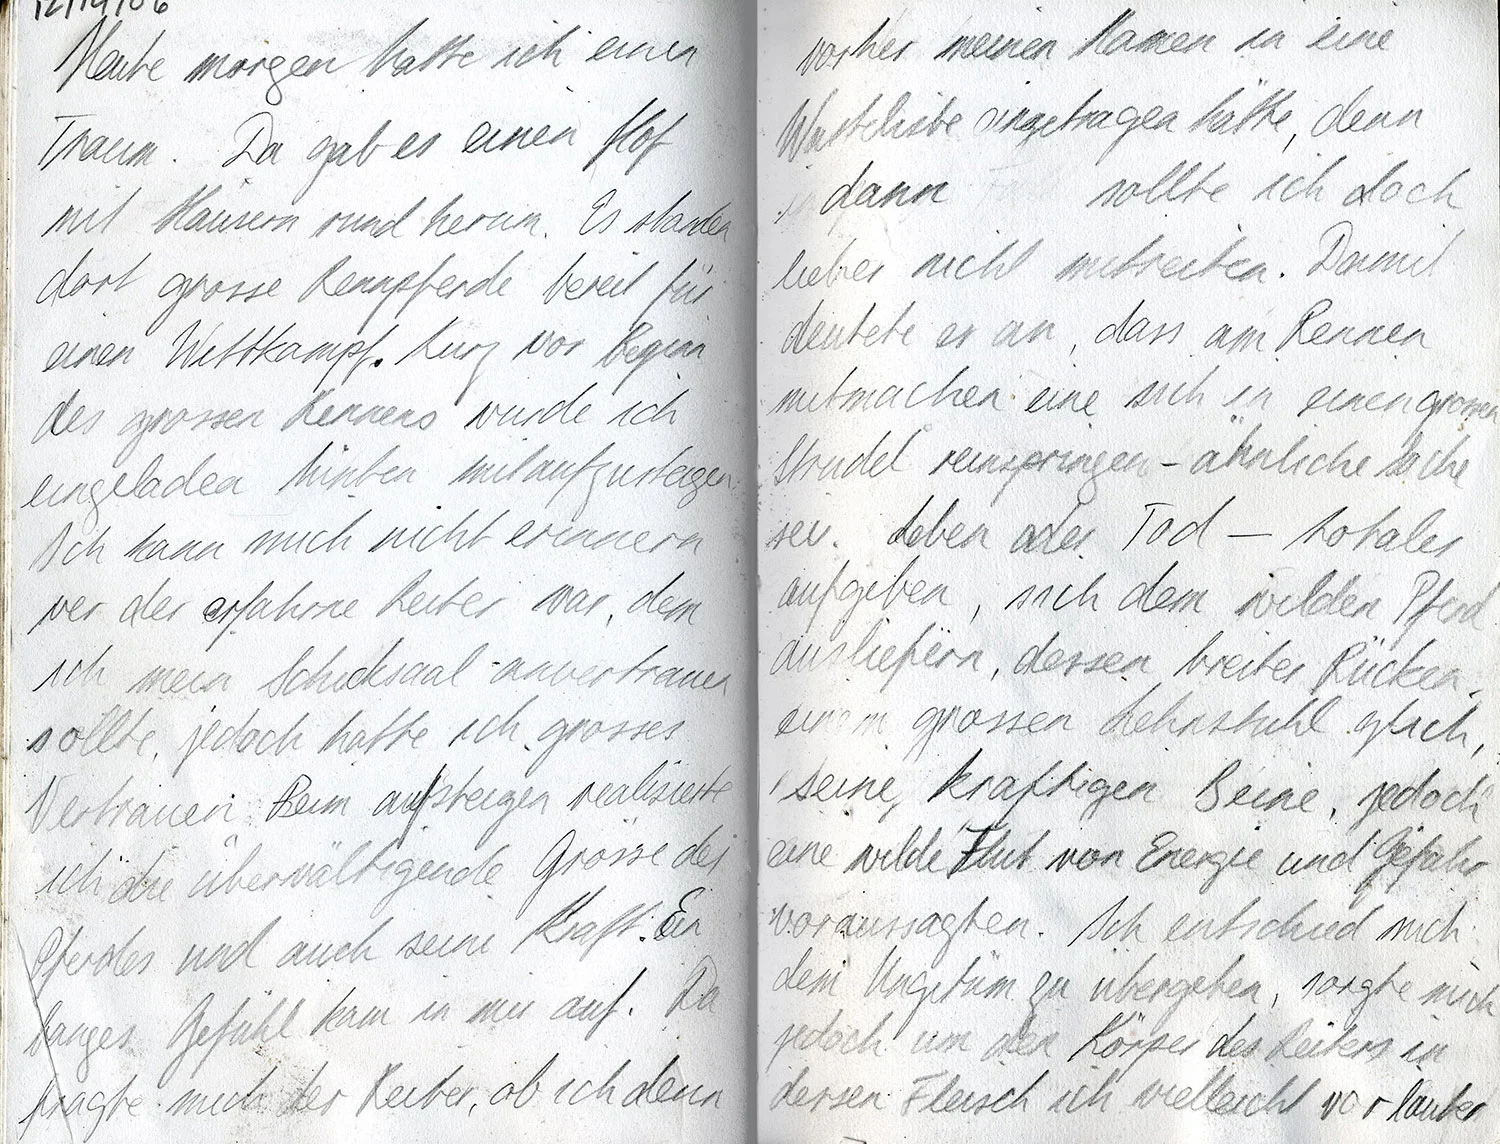 12/14/06
Heute morgen hatte ich einen
Traum. Da gab es einen Hof
mit Häusern rund herum. Es standen
dort grosse Rennpferde bereit für
einen Wettkampf. Kurz vor Beginn
des grossen Rennens wurde ich
eingeladen hinten mitaufzusteigen
Ich kann mich nicht erinnern
wer der erfahrne Reiter war, dem
ich mein Schicksaal anvertrauen
sollte, jedoch hatte ich grosses
Vertrauen. Beim aufsteigen realisierte
ich die überwältigende Grösse des
Pferdes und auch seine Kraft. Ein
banges Gefühl kam in mir auf. Da
fragte mich der Reiter, ob ich denn
vorher meinen Namen in eine
Warteliste eingetragen hätte, denn
dann sollte ich doch
lieber nicht mitreiten. Damit
deutete er an, dass am Rennen
mitmachen eine sich in einen grossen
Strudel reinspringen - ähnliche Sache
sei. Leben oder Tod — totales
aufgeben, sich dem wilden Pferd
ausliefern, dessen breiter Rücken
einem grossen Lehnstuhl glich,
seine, kraftigen Beine, jedoch
eine wilde Flut von Energie und Gefahr
voraussagten. Ich entschied mich
dem Ungetüm zu übergeben, sorgte mich
jedoch um den Körper des Reiters in
dessen Fleisch ich vielleicht vor lauter